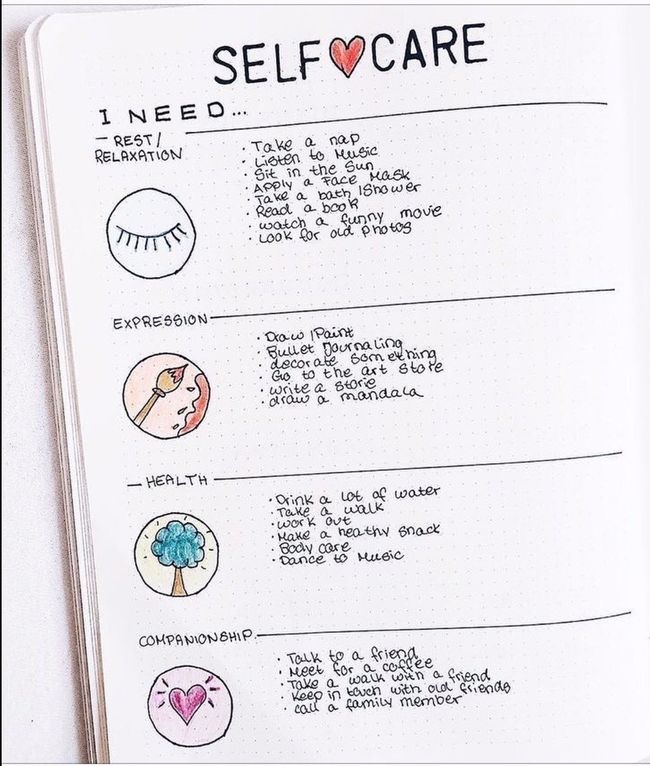 SELF CARE
I NEED...
- REST/
RELAXATION
· Take a nap
· Listen to Music
· Sit in the Sun
· Apply a Face Mask
· Take a bath /Shower
· Read a book
· watch a funny movie
· Look for old photos
EXPRESSION
· Draw /Paint
· Bullet Journaling
· decorate something
· Go to the art store
· write a storie
· draw a mandala
- HEALTH
· Drink a lot of water
· Take a walk
· work out
· Make a heathy snack
· Body care
· Dance to Music
COMPANIONSHIP.
· Talk to a friend
· Meet for a coffee
· Take a walk with a friend
· Keep in touch with old friends
· call a family member